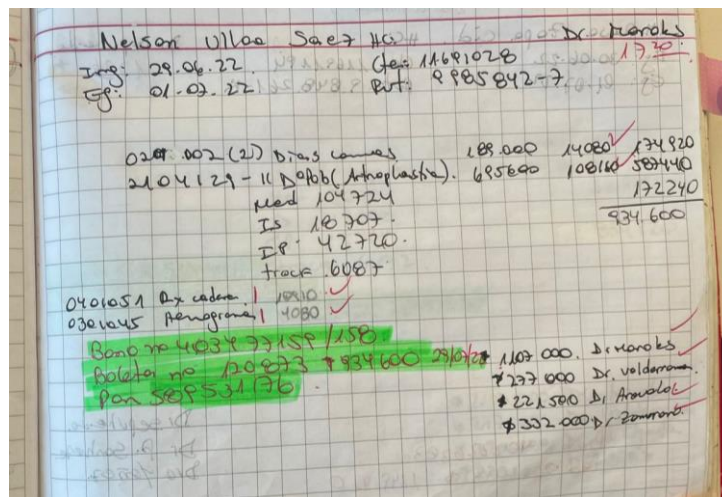 Nelson Ulloa Saez HC: Dr. Haroks
Ing: 29.06.22. Cte: 11691028 17.20.
Eg: 01.07.22 Rut: 9985842-7
002 (2) Dias camas 189.000 14080 174920
2104129 - 11 DºPab (Artroplastia). 695600 108160 587440
Med 104724 172240
Is 18707. 934.600
IP. 42720.
track .6087
0401051 Rx cadera 1
0301045 Hemograma 1 4080
Bono nº 403477159/158.
Boleta nº 120873 $934600 29/07/22
Pan 589531176
$ 1107 000. Dr Haroks
$ 277 000 Dr. Valderrama.
$ 221.500 Dr Arevalo
$ 332.000 Dr Zamorano.